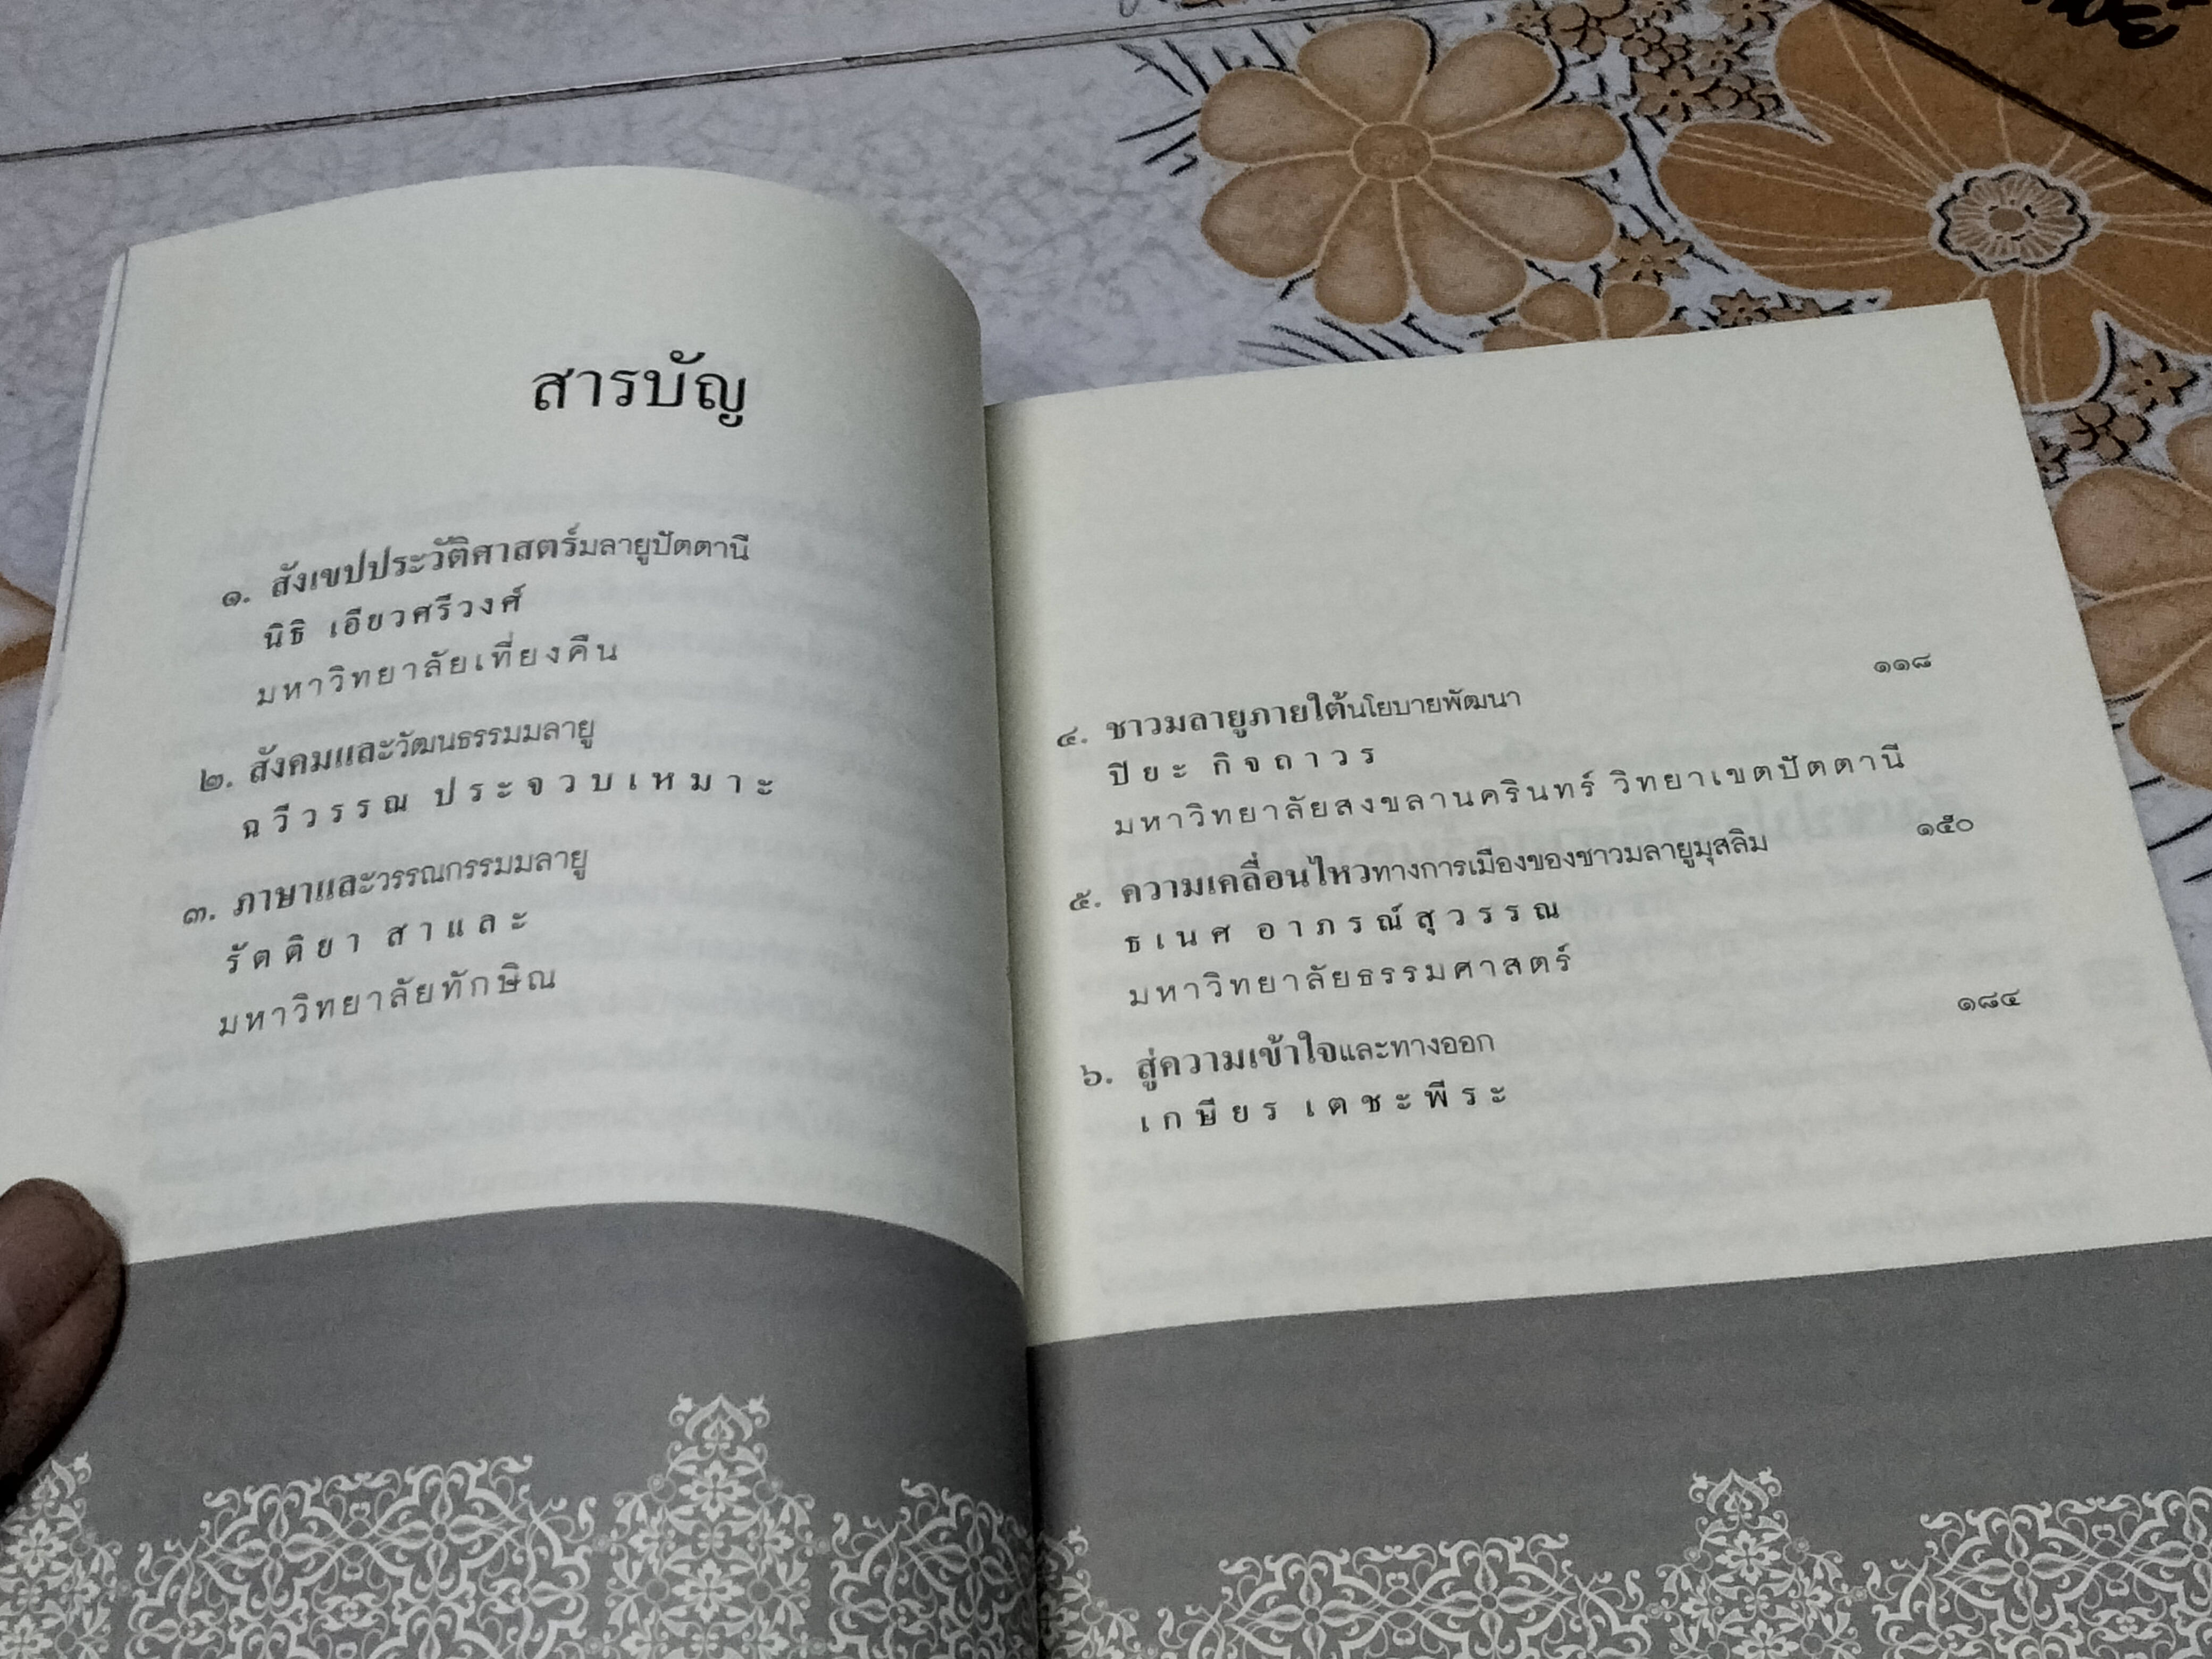 สารบัญ
๑. สังเขปประวัติศาสตร์มลายูปัตตานี
นิธิ เอียวศรีวงศ์
มหาวิทยาลัยเที่ยงคืน
๒. สังคมและวัฒนธรรมมลายู
ฉวีวรรณ ประจวบเหมาะ
๓. ภาษาและวรรณกรรมมลายู
รัตติยา สาและ
มหาวิทยาลัยทักษิณ
๔. ชาวมลายูภายใต้นโยบายพัฒนา ๑๑๘
ปิยะ กิจถาวร
มหาวิทยาลัยสงขลานครินทร์ วิทยาเขตปัตตานี
๕. ความเคลื่อนไหวทางการเมืองของชาวมลายูมุสลิม ๑๕๐
ธเนศ อาภรณ์สุวรรณ
มหาวิทยาลัยธรรมศาสตร์
๖. สู่ความเข้าใจและทางออก ๑๘๔
เกษียร เตชะพีระ